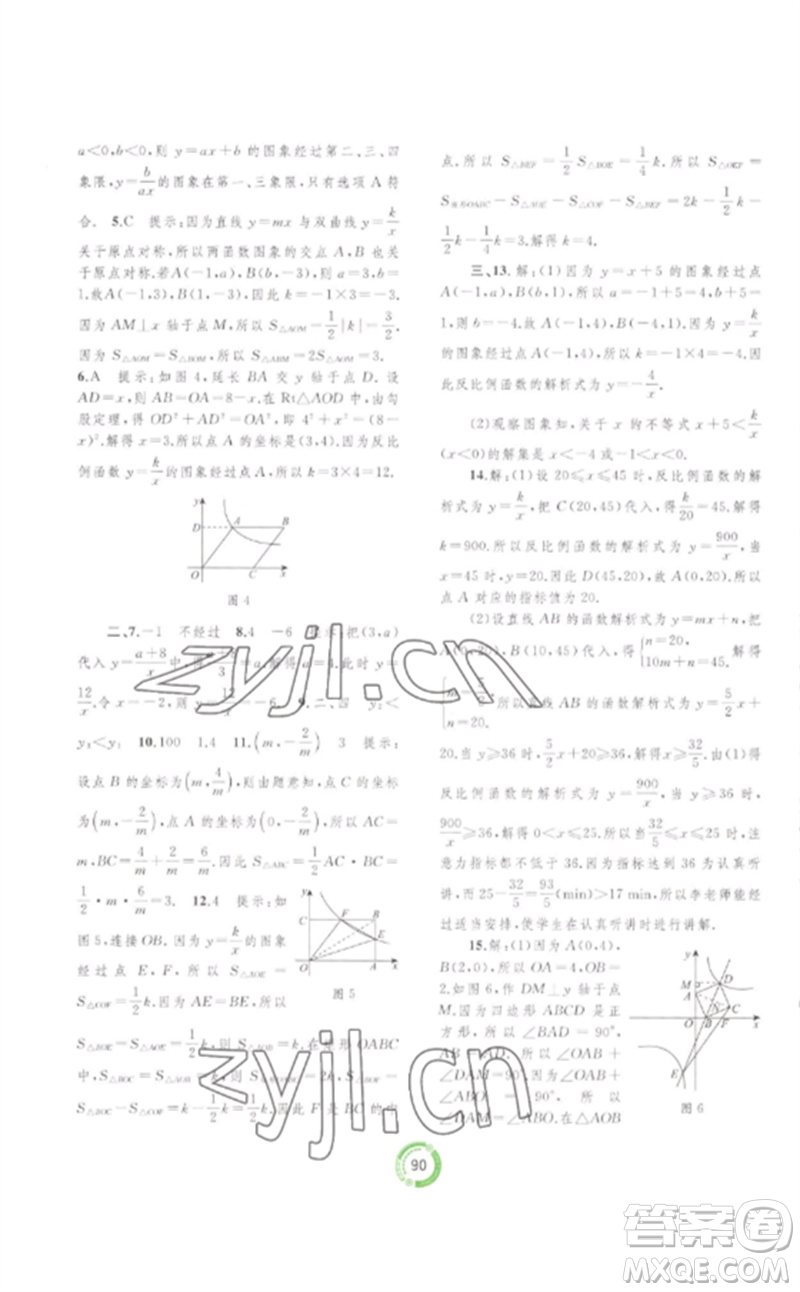 a<0,b<0,则 y=ax+b 的图象经过第二、三、四
象限,y=b/ax 的图象在第一、三象限,只有选项 A 符
合. 5.C 提示:因为直线 y=mx 与双曲线 y=k/x
关于原点对称,所以两函数图象的交点 A,B 也关
于原点对称.若A(-1,a),B(b,-3),则 a=3,b=
1.故A(-1,3),B(1,-3).所以 k=-1×3=-3.
因为 AM⊥x 轴于点 M,所以 S△AOM=1/2|k|=3/2.
因为 S△AOM=S△BOM,所以 S△ABM=2S△AOM=3.
6.A 提示:如图 4,延长 BA 交 y 轴于点 D. 设
AD=x,则 AB=OA=8-x.在 Rt△AOD 中,由勾
股定理,得 OD²+AD²=OA²,即 4²+x²=(8-
x)².解得 x=3,所以点 A 的坐标是(3,4).因为反比
例函数 y=k/x 的图象经过点 A,所以 k=3×4=12.
y
D A B
O C x
图 4
二、7.-1 不经过 8.4 -6 提示:把(3,a)
代入 y=(a+8)/x 中,得 a=(a+8)/3,解得 a=4.此时 y=
12/x.令 x=-2,则 y=12/-2=-6. 9.二、四 y₂<
y₃<y₁ 10.100 1.4 11.(m,-2/m) 3 提示:
设点 B 的坐标为(m,4/m),则由题意知,点 C 的坐标
为(m,-2/m),点 A 的坐标为(0,-2/m),所以 AC=
m,BC=4/m+2/m=6/m.因此 S△ABC=1/2AC·BC=
1/2·m·6/m=3. 12.4 提示:如
图 5,连接 OB.因为 y=k/x 的图象
经过点 E,F,所以 S△AOE=
S△COF=1/2k.因为 AE=BE,所以
y
C F B
E
O A x
图 5
S△BOE=S△AOE=1/2k.在矩形 OABC
中,S△BOC=S△AOB=k,则 S矩形OABC=2k,则 S△BOF=
S△BOC-S△COF=k-1/2k=1/2k.因此 F 是 BC 的中
点.所以 S△BEF=1/2S△BOE=1/4k.所以 S△OEF=
S矩形OABC-S△AOE-S△COF-S△BEF=2k-1/2k-
1/2k-1/4k=3.解得 k=4.
三、13.解:(1)因为 y=x+5 的图象经过点
A(-1,a),B(b,1),所以 a=-1+5=4,b+5=
1,则 b=-4.故 A(-1,4),B(-4,1).因为 y=k/x
的图象经过点 A(-1,4),所以 k=-1×4=-4.因
此反比例函数的解析式为 y=-4/x.
(2)观察图象知,关于 x 的不等式 x+5<k/x
(x<0)的解集是 x<-4 或-1<x<0.
14.解:(1)设 20≤x≤45 时,反比例函数的解
析式为 y=k/x,把 C(20,45)代入,得 k/20=45.解得
k=900.所以反比例函数的解析式为 y=900/x.当
x=45 时,y=900/45=20,所以 D(45,20).所以点
A 对应的指标值为 20.
(2)设直线 AB 的函数解析式为 y=mx+n,把
A(0,20),B(10,45)代入,得{n=20, 10m+n=45. 解得
{m=5/2, n=20. 所以直线 AB 的函数解析式为 y=5/2x+
20.当 y≥36 时,5/2x+20≥36,解得x≥32/5.由(1)得
反比例函数的解析式为 y=900/x.当 y≥36 时,
900/x≥36,解得 0<x≤25.所以当32/5≤x≤25 时,注
意力指标达到 36.因为指标达到 36 为认真听
讲,而 25-32/5=93/5(min)>17 min,所以李老师能
经过适当安排,使学生在认真听讲时进行讲解.
15.解:(1)因为 A(0,4),
B(2,0),所以 OA=4,OB=
2.如图 6,作 DM⊥y 轴于点
M.因为四边形 ABCD 是正
方形,所以∠BAD=90°,
AD=AB.所以∠OAB+
∠DAM=90°.因为∠OAB+
∠ABO=90°,所以∠ABO=
∠DAM.在△AOB
y
M D
A
S C
O B F x
E
图 6
90
zyjl.cn
zyjl.cn
答案卷
MXQE.COM